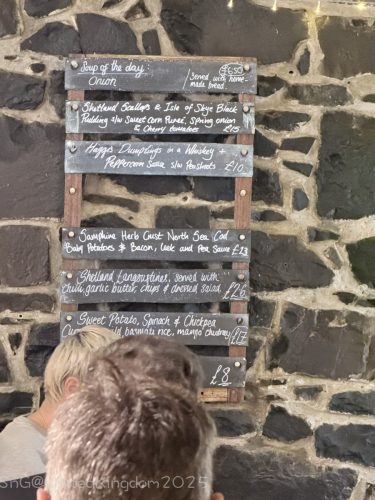 Soup of the day: £6.50
Onion / Served with home-
made bread
Shetland Scallops & Isle of Skye Black
Pudding s/w Sweet Corn Pureé, Spring onion
& Cherry tomatoes £15
Haggis Dumplings in a Whiskey &
Peppercorn Sauce s/w Peashoots £10
Samphire Herb Crust North Sea Cod
Baby Potatoes & Bacon, Leek and Pea Sauce £23
Shetland Langoustines, served with
chilli garlic butter, chips & dressed salad. £26
Sweet Potato, Spinach & Chickpea
basmati rice, mango chutney £17
£8
2025